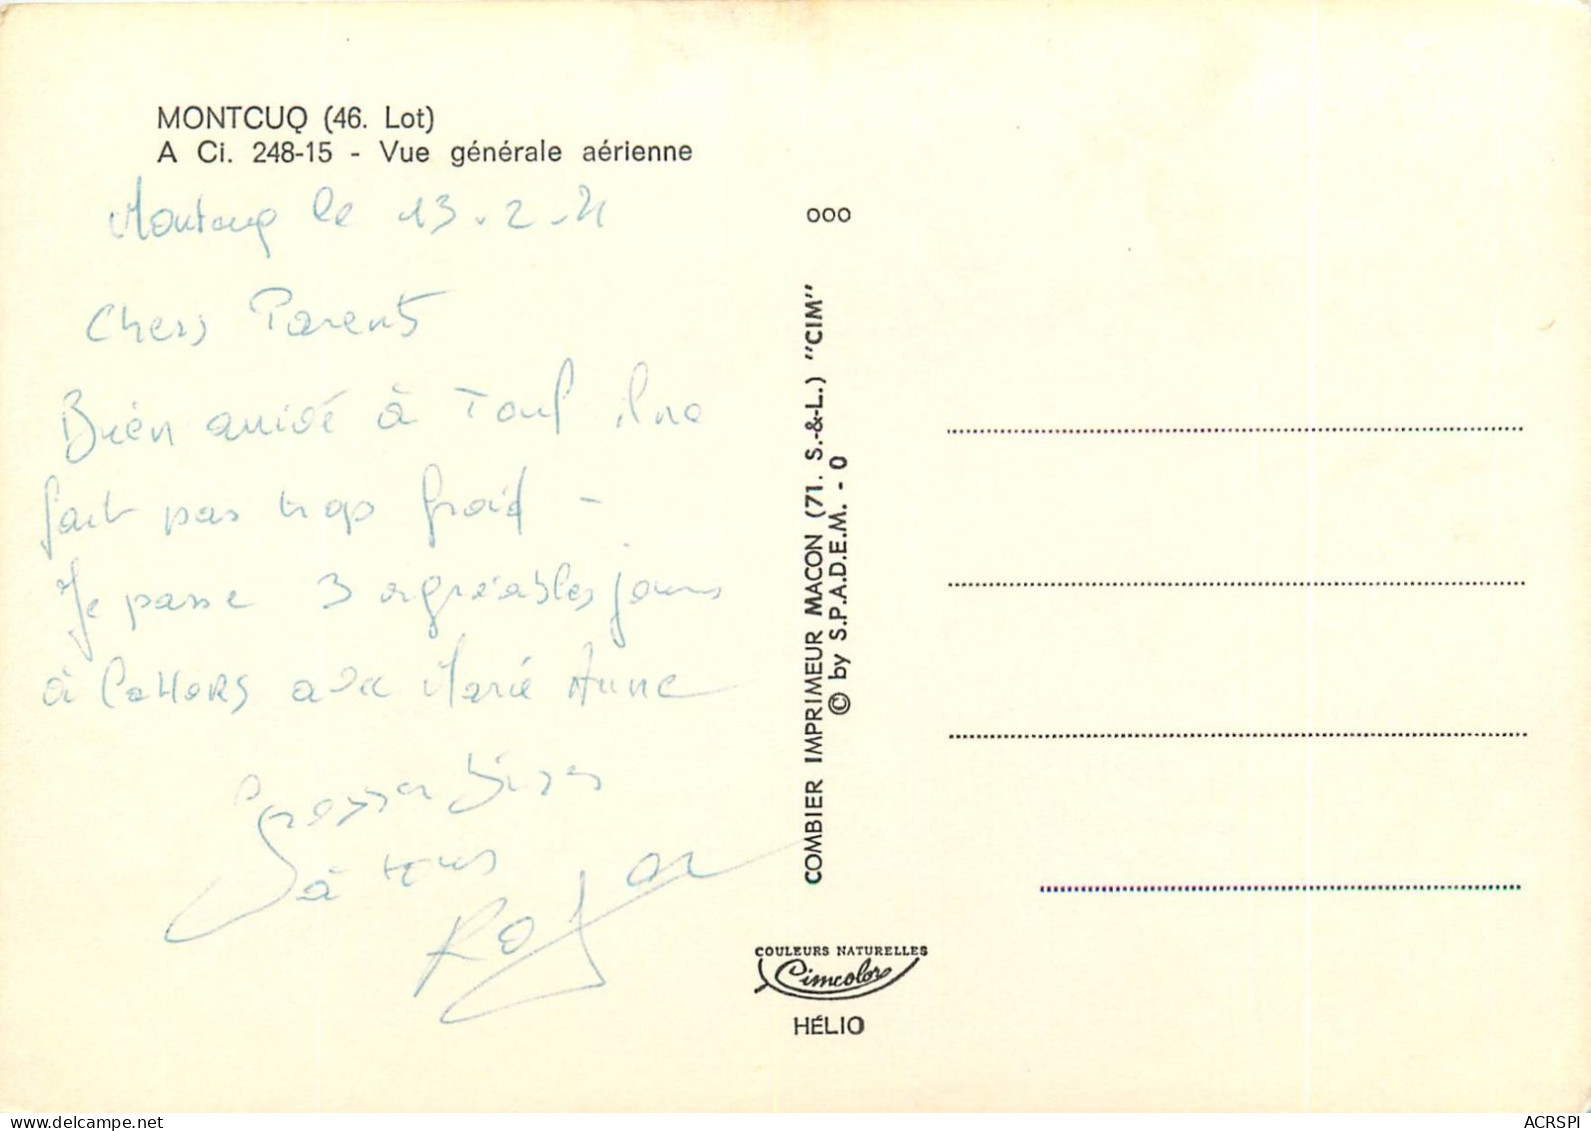 MONTCUQ (46. Lot)
A Ci. 248-15 - Vue générale aérienne
Montcuq le 13.2.71
Chers Parents
Bien arrivé à Toul il ne
fait pas trop froid -
Je passe 3 agréables jours
à CaHORS avec Marie Anne
Grosses bises
à tous
Roger
OOO
COMBIER IMPRIMEUR MACON (71. S.-&-L.) "CIM"
© by S.P.A.D.E.M. - O
COULEURS NATURELLES
Cimcolor
HÉLIO
ACRSPI